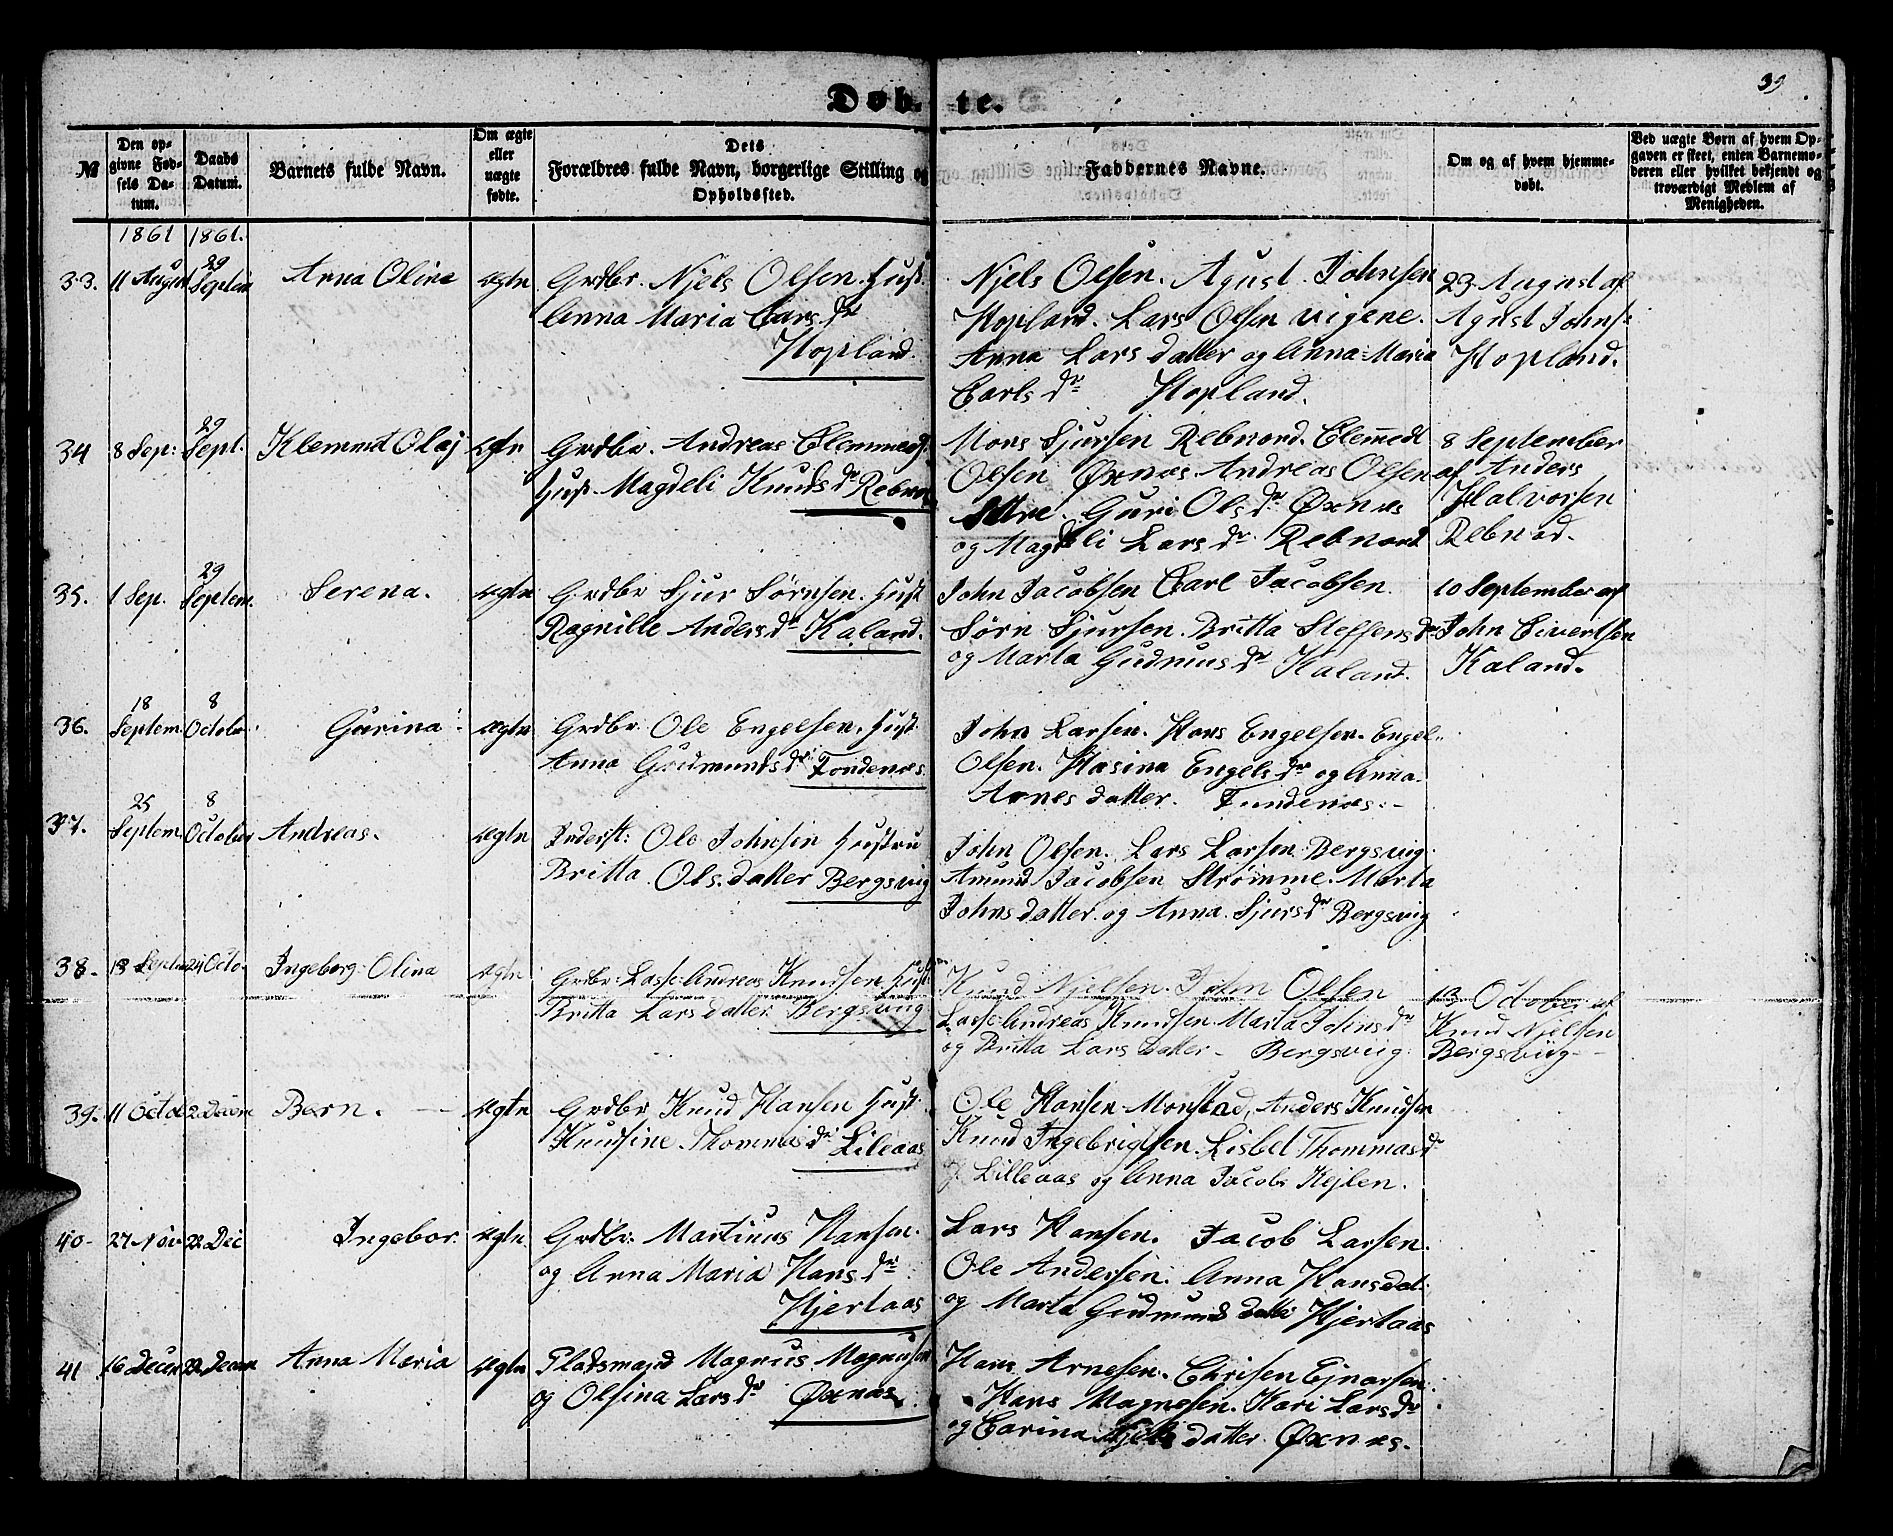 39
Døbte.
№
Den op-
givne Fød-
sels Da-
tum.
Daabs
Datum.
Barnets fulde Navn.
Om ægte
eller
uægte
fødte.
Dets
Forældres fulde Navn, borgerlige Stilling og
Opholdssted.
Faddernes Navne.
Om og af hvem hjemme-
døbt.
Ved uægte Børn af hvem Op-
gaven er skeet, enten Barnemo-
deren eller hvilket bekjendt og
troværdigt Medlem af
Menigheden.
1861 1861.
33. 11 August 29 Septem Anna Olina ægte
Grdbr. Njels Olsen. Hust.
Anna Maria Carsdr
Hopland.
Njels Olsen. Agust Johnsen
Hopland. Lars Olsen Vigene.
Anna Lars datter og Anna Maria
Carls dr Hopland.
23 August af
Agust Johns:
Hopland.
34 8 Sep: 29 Sept. Klemmet Olaj ægte
Grdbr. Andreas Clemmets.
Hust Magdeli Knuds dr Rebno
Mons Sjursen Rebnord. Clemedt
Olsen Øxnes Andreas Olsen
Guri Ols dr Øxnes
og Magdeli Lars dr Rebnord
8 September
af Anders
Halvorsen
Rebnod.
35. 1 Sep. 29 Septem. Serena. ægte
Grdbr Sjur Sørnsen. Hust
Ragnille Anders dr Kaland.
John Jacobsen Carl Jacobsen.
Sørn Sjursen. Britta Steffens dr
og Marta Gudmus dr Kaland.
10 September af
John Sivertsen
Kaland.
36. 18 Septem. 8 October Gurina ægte
Grdbr. Ole Engelsen. Hust
Anna Gudmunds dr Fondenes
John Larsen. Hans Engelsen. Engel
Olsen. Hasina Engels dr og Anna.
Arnes datter. Fundenes.
37. 25 Septem. 8 October Andreas. ægte
Inderst: Ole Johnsen Hustru
Britta Ols. datter Bergsvig
John Olsen. Lars Larsen Bergsvig.
Amund Jacobsen Strømme. Marta
Johns datter og Anna Sjurs dr Bergsvig
38. 13 Septm 24 Octo. Ingeborg Olina ægte
Grdbr: Lasse Andreas Knudsen. Hust
Britta Lars datter Bergsvig
Knud Njelsen. John Olsen
Lasse Andreas Knudsen Marta Johns dr
og Britta Lars datter - Bergsviig.
10 October af
Knud Njelsen
Bergsviig
39. 11 Octo 2 Decem Bern. ægte
Grdbr Knud Hansen Hust
Knudsine Thommas dr Lileaas
Ole Hansen Monstad, Anders Knudsen
Knud Ingebrigtsen. Lisbet Thommas dr
Lilleaas og Anna Jacobs Kejlen.
40. 27 Nov 22 Dec Ingebor. ægte
Grdbr: Martinus Hansen.
og Anna Maria Hans dr
Hjertaas
Lars Hansen. Jacob Larsen.
Ole Andersen. Anna Hansdat.
og Marta Gudmund datter Hjertaas
41 16 Decem 22 Decem Anna Maria ægte
Pladsmand Magnus Magnusen
og Olsina Lars dr Øxnes.
Hans Arnesen. Chrisen Ejnarsen.
Hans Magnesen. Kari Lars dr
og Carina Njels datter. Øxnes.